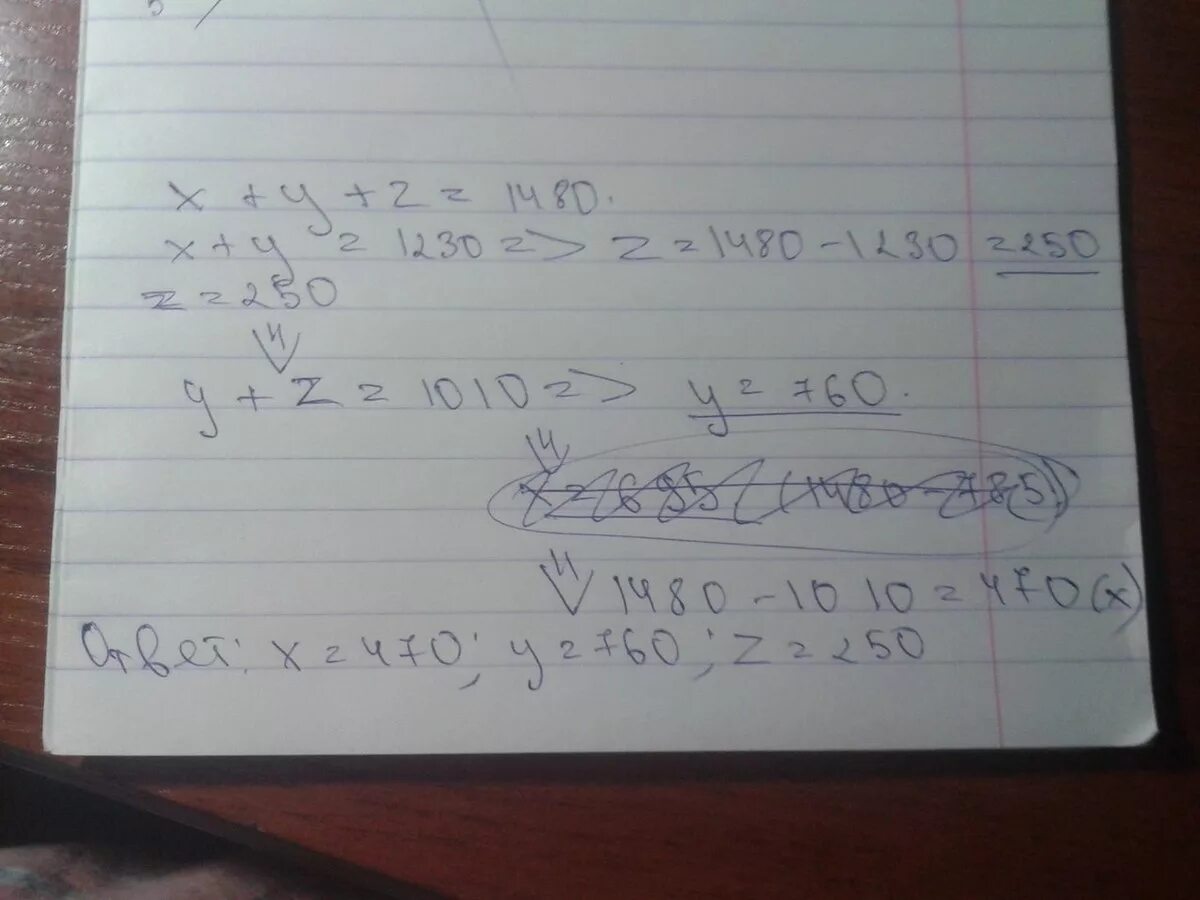 x + y + z = 1480.
x + y = 1230 => z = 1480 - 1230 = 250
z = 250
y + z = 1010 => y = 760.
1480 - 1010 = 470 (x)
Ответ: x = 470; y = 760; z = 250